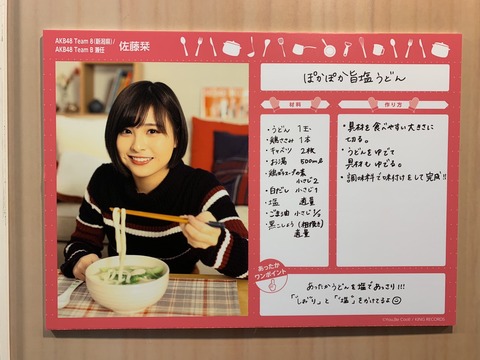 AKB48 Team 8（新潟県）/
AKB48 Team B 兼任
佐藤栞
ぽかぽか旨塩うどん
材料
・うどん 1玉
・鶏ささみ 1本
・キャベツ 2枚
・お湯 500ml
・鶏ガラスープの素
小さじ2
・白だし 小さじ1
・塩 適量
・ごま油 小さじ1/2
・黒こしょう（粗挽き）
適量
作り方
・具材を食べやすい大きさに
切る。
・うどんをゆでて
具材もゆでる。
・調味料で味付けをして完成!!
あったか
ワンポイント
あったかうどんを塩であっさり!!!
「しおり」と「塩」をかけてるよ☺
©You, Be Cool! / KING RECORDS